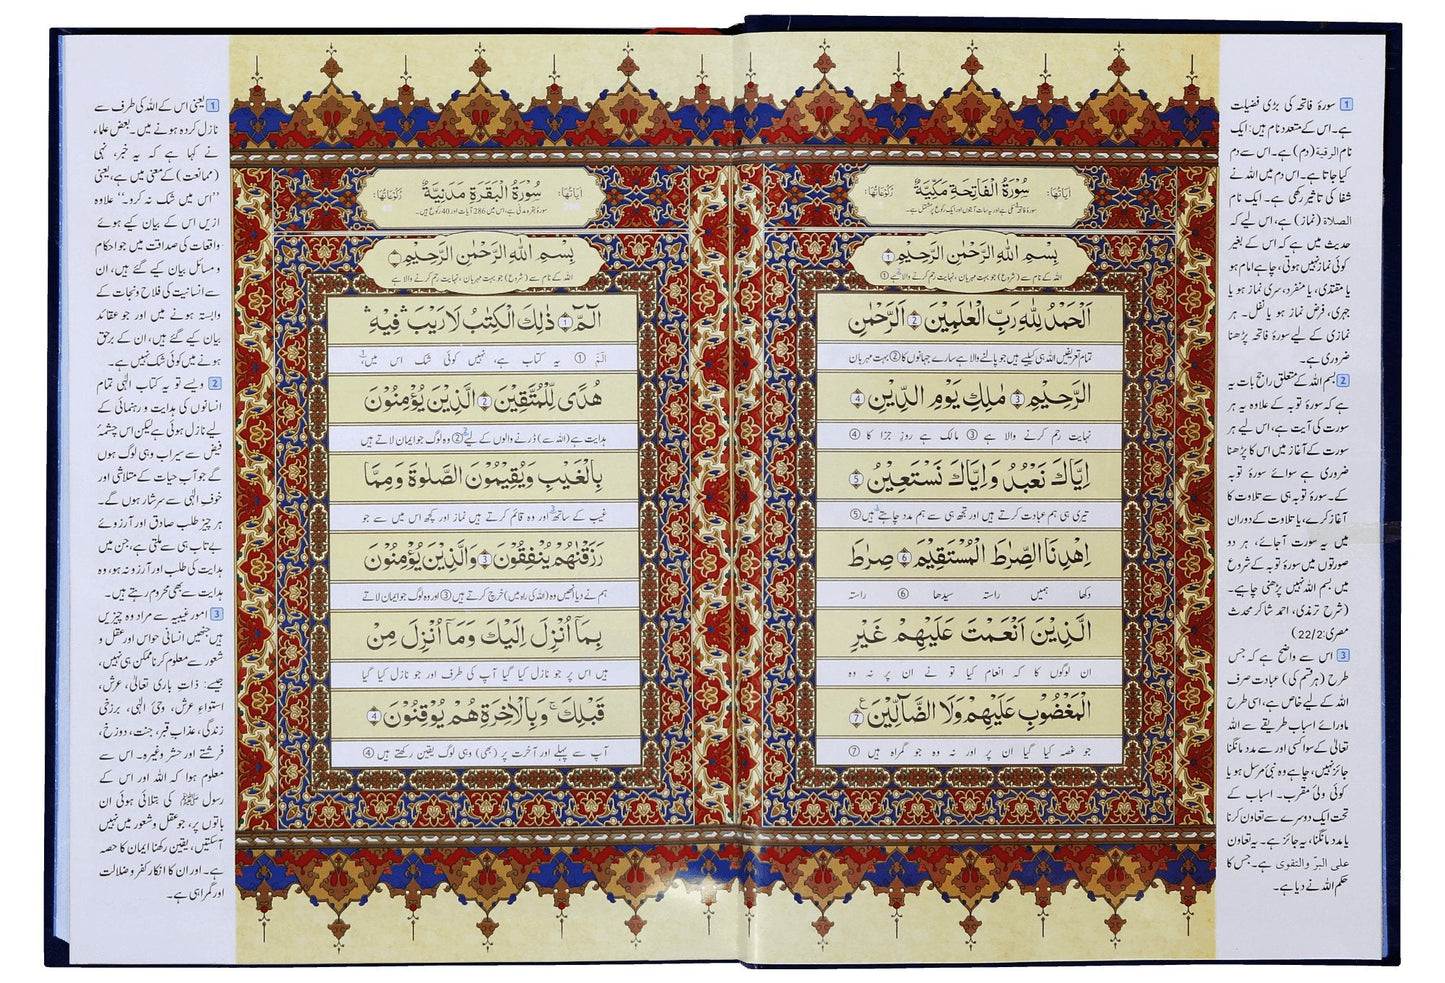 1 سورۂ فاتحہ کی بڑی فضیلت
ہے۔اس کے متعدد نام ہیں: ایک
نام الرقیۃ (دم) ہے۔ اس سے دم
کیا جاتا ہے۔ اس دم میں اللہ نے
شفا کی تاثیر رکھی ہے۔ ایک نام
الصلاۃ (نماز) ہے، اس لیے کہ
حدیث میں ہے کہ اس کے بغیر
کوئی نماز نہیں ہوتی، چاہے امام ہو
یا مقتدی، یا منفرد، سری نماز ہو یا
جہری، فرض نماز ہو یا نفل۔ ہر
نمازی کے لیے سورۂ فاتحہ پڑھنا
ضروری ہے۔
2 بسم اللہ کے متعلق راجح بات یہ
ہے کہ سورۂ توبہ کے علاوہ یہ ہر
سورت کی آیت ہے، اس لیے ہر
سورت کے آغاز میں اس کا پڑھنا
ضروری ہے سوائے سورۂ توبہ
کے۔ سورۂ توبہ ہی سے تلاوت کا
آغاز کرے، یا تلاوت کے دوران
میں یہ سورت آجائے، ہر دو
صورتوں میں سورۂ توبہ کے شروع
میں بسم اللہ نہیں پڑھنی چاہیے۔
(شرح ترمذی، احمد شاکر محدث
مصری:22/2)
3 اس سے واضح ہے کہ جس
طرح (ہر قسم کی) عبادت صرف
اللہ کے لیے خاص ہے، اسی طرح
ماورائے اسباب طریقے سے اللہ
تعالیٰ کے سوا کسی اور سے مدد مانگنا
جائز نہیں، چاہے وہ نبیٔ مرسل ہو یا
کوئی ولیٔ مقرب۔ اسباب کے
تحت ایک دوسرے سے تعاون کرنا
یا مدد مانگنا، یہ جائز ہے۔ یہ تعاون
علی البرّ والتقوی ہے۔ جس کا
حکم اللہ نے دیا ہے۔
اٰیاتہا: سُوْرَةُ الْفَاتِحَةِ مَكِّيَّةٌ رکوعاتہا:
بِسْمِ اللّٰهِ الرَّحْمٰنِ الرَّحِيْمِ 1
اللہ کے نام سے (شروع) جو بہت مہربان، نہایت رحم کرنے والا ہے 1
اَلْحَمْدُ لِلّٰهِ رَبِّ الْعٰلَمِيْنَ 2 الرَّحْمٰنِ
تمام تعریفیں اللہ ہی کیلیے ہیں جو پالنے والا ہے سارے جہانوں کا 2 بہت مہربان
الرَّحِيْمِ 3 مٰلِكِ يَوْمِ الدِّيْنِ 4
نہایت رحم کرنے والا ہے 3 مالک ہے روزِ جزا کا 4
اِيَّاكَ نَعْبُدُ وَاِيَّاكَ نَسْتَعِيْنُ 5
تیری ہی ہم عبادت کرتے ہیں اور تجھ ہی سے ہم مدد چاہتے 3 ہیں 5
اِهْدِنَا الصِّرَاطَ الْمُسْتَقِيْمَ 6 صِرَاطَ
دکھا ہمیں راستہ سیدھا 6 راستہ
الَّذِيْنَ اَنْعَمْتَ عَلَيْهِمْ غَيْرِ
ان لوگوں کا کہ انعام کیا تو نے ان پر نہ وہ
الْمَغْضُوْبِ عَلَيْهِمْ وَلَا الضَّآلِّيْنَ ع 7
جو غصہ کیا گیا ان پر اور نہ وہ جو گمراہ ہیں 7
سُوْرَةُ الْبَقَرَةِ مَدَنِيَّةٌ
اٰیاتہا: رکوعاتہا:
سورۂ بقرہ مدنی ہے، اس میں 286 آیات اور 40 رکوع ہیں۔
بِسْمِ اللّٰهِ الرَّحْمٰنِ الرَّحِيْمِ
اللہ کے نام سے (شروع) جو بہت مہربان، نہایت رحم کرنے والا ہے
الٓمّٓ 1 ذٰلِكَ الْكِتٰبُ لَا رَيْبَ ۛ فِيْهِ ۛ
الٓمّٓ 1 یہ کتاب ہے، نہیں کوئی شک اس میں 1
هُدًى لِّلْمُتَّقِيْنَ 2 الَّذِيْنَ يُؤْمِنُوْنَ
ہدایت ہے (اللہ سے) ڈرنے والوں کے لیے 2 وہ لوگ جو ایمان لاتے ہیں
بِالْغَيْبِ وَيُقِيْمُوْنَ الصَّلٰوةَ وَمِمَّا
غیب کے ساتھ 3 اور وہ قائم کرتے ہیں نماز اور کچھ اس میں سے جو
رَزَقْنٰهُمْ يُنْفِقُوْنَ 3 وَالَّذِيْنَ يُؤْمِنُوْنَ
ہم نے دیا انھیں وہ (اللہ کی راہ میں) خرچ کرتے ہیں 3 اور وہ لوگ جو ایمان لاتے
بِمَآ اُنْزِلَ اِلَيْكَ وَمَآ اُنْزِلَ مِنْ
ہیں اس پر جو نازل کیا گیا آپ کی طرف اور جو نازل کیا گیا
قَبْلِكَ ۚ وَبِالْاٰخِرَةِ هُمْ يُوْقِنُوْنَ 4
آپ سے پہلے اور آخرت پر (بھی) وہی لوگ یقین رکھتے ہیں 4
1 یعنی اس کے اللہ کی طرف سے
نازل کردہ ہونے میں۔ بعض علماء
نے کہا ہے کہ یہ خبر، نہی
(ممانعت) کے معنی میں ہے، یعنی
”اس میں شک نہ کرو۔“ علاوہ
ازیں اس کے بیان کیے ہوئے
واقعات کی صداقت میں جو احکام
و مسائل بیان کیے گئے ہیں، ان
سے انسانیت کی فلاح و نجات کے
وابستہ ہونے میں اور جو عقائد
بیان کیے گئے ہیں، ان کے برحق
ہونے میں کوئی شک نہیں ہے۔
2 ویسے تو یہ کتاب الٰہی تمام
انسانوں کی ہدایت و رہنمائی کے
لیے نازل ہوئی ہے لیکن اس چشمۂ
فیض سے سیراب وہی لوگ ہوں
گے جو آب حیات کے متلاشی اور
خوفِ الٰہی سے سرشار ہوں گے۔
ہر چیز طلب صادق اور آرزوئے
بے تاب ہی سے ملتی ہے، جن میں
ہدایت کی طلب اور آرزو نہ ہو، وہ
ہدایت سے بھی محروم رہتے ہیں۔
3 امورِ غیبیہ سے مراد وہ چیزیں
ہیں جنھیں انسانی حواس اور عقل و
شعور سے معلوم کرنا ممکن ہی نہیں،
جیسے: ذاتِ باری تعالیٰ، عرش،
استواءِ عرش، وحیٔ الٰہی، برزخی
زندگی، عذابِ قبر، جنت، دوزخ،
فرشتے اور حشر وغیرہ۔ اس سے
معلوم ہوا کہ اللہ اور اس کے
رسول ﷺ کی بتلائی ہوئی ان
باتوں پر، جو عقل و شعور میں نہیں
آسکتیں، یقین رکھنا ایمان کا حصہ
ہے۔ اور ان کا انکار کفر و ضلالت
اور گمراہی ہے۔